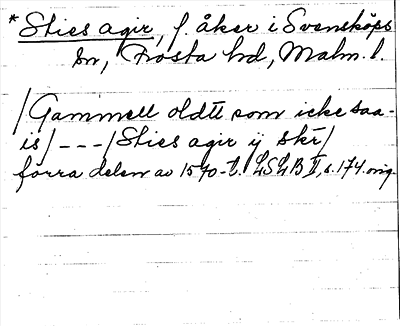 * Sties agir, f. åker i Svensköps
sn, Frosta hd, Malm. l.
/Gammell oldtt som icke saa-
is/ - - - /Sties agir ij skr/
förra delen av 1570-t. LSLB II, s. 174. orig.